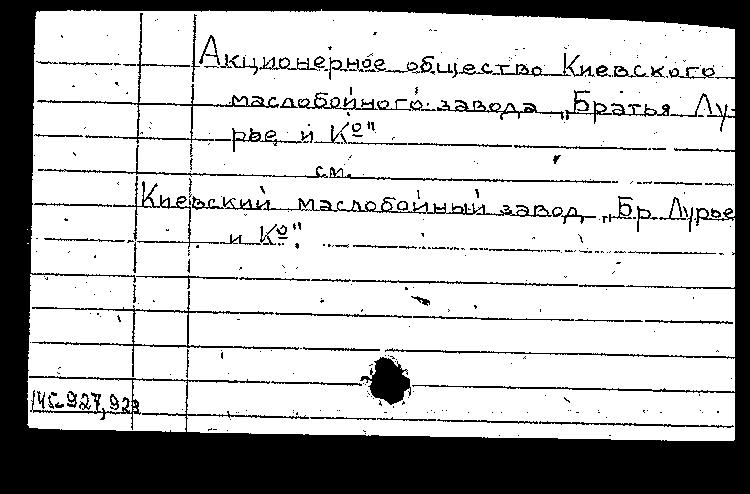 Акционерное общество Киевского
маслобойного завода „Братья Лу-
рье и Кº"
см.
Киевский маслобойный завод „Бр Лурье
и Кº".